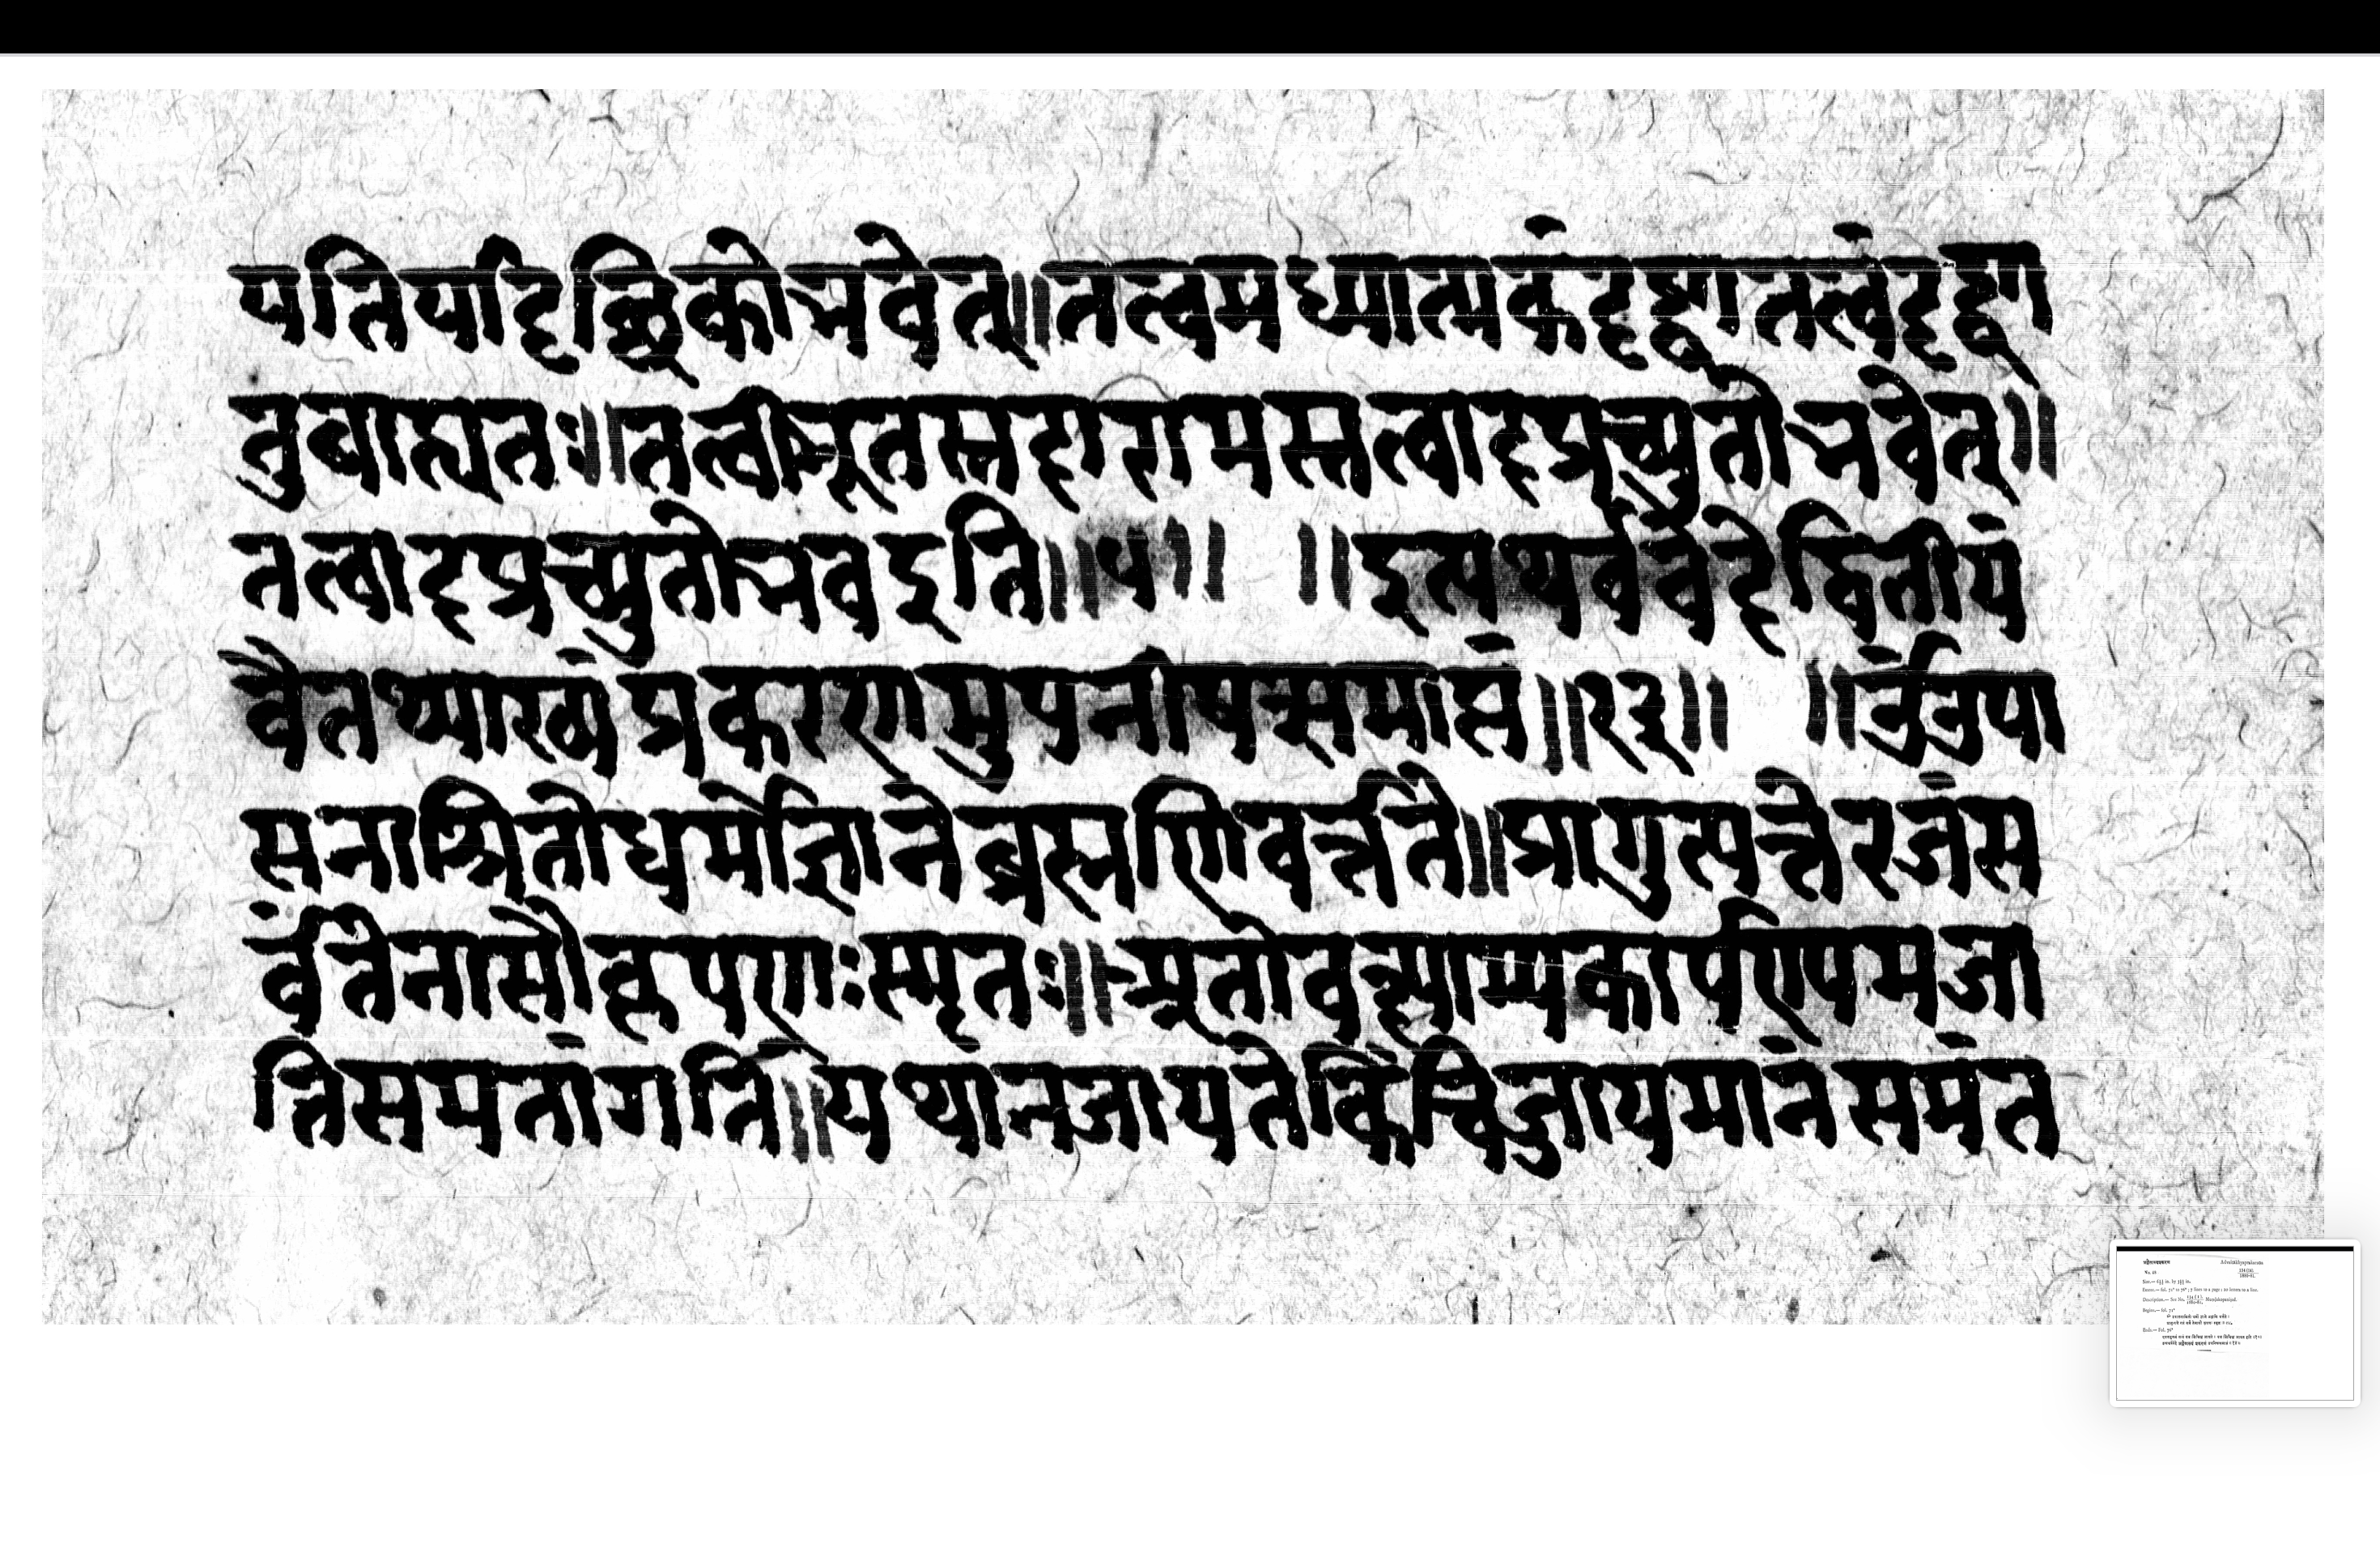 यतिर्यादृच्छिकोभवेत्॥तत्त्वमध्यात्मकंदृष्ट्वातत्त्वंदृष्ट्वा
तुबाह्यतः॥तत्त्वीभूतस्तदारामस्तत्त्वादप्रच्युतोभवेत्॥
तत्त्वादप्रच्युतोभवइति॥५॥ ॥इत्यथर्ववेदेद्वितीयं
वैतथ्याख्यंप्रकरणमुपनीषत्समाप्तं॥२३॥ ॥ॐउपा
सनाश्रितोधर्मोज्ञानेब्रह्मणिवर्त्तते॥प्रागुत्पत्तेरजंस
र्वंतेनासौकृपणःस्मृतः॥अतोवक्ष्याम्यकार्पण्यमजा
तिसमतांगति॥यथानजायतेकिंचिज्जायमानंसमंत